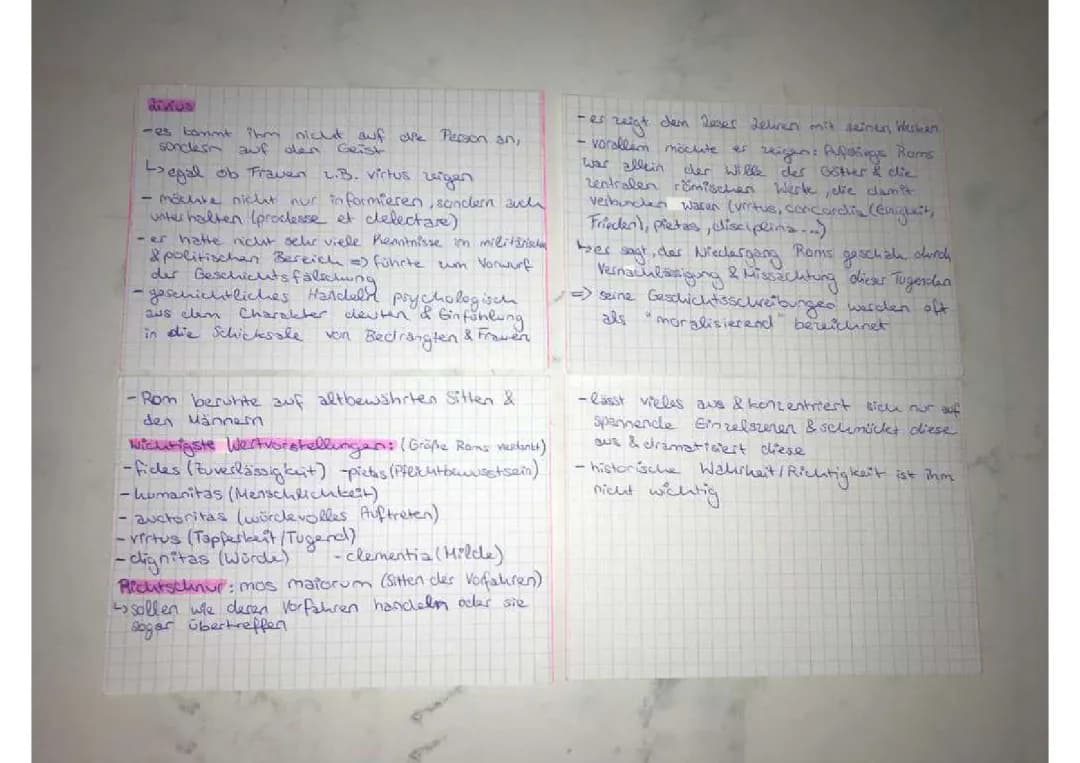 Livius
- es kommt ihm nicht auf die Person an,
sondern auf den Geist
↳ egal ob Frauen z.B. virtus zeigen
- möchte nicht nur informieren, sondern auch
unterhalten (prodesse et delectare)
- er hatte nicht sehr viele Kenntnisse im militärischen
& politischen Bereich => führte zum Vorwurf
der Geschichtsfälschung
- geschichtliches Handeln psychologisch
aus dem Charakter deuten & Einfühlung
in die Schicksale von Bedrängten & Frauen
- er zeigt dem Leser Lehren mit seinen Werken
- vorallem möchte er zeigen: Aufstiegs Roms
war allein der Wille der Götter & die
zentralen römischen Werte, die damit
verbunden waren (virtus, concordia (Einigkeit,
Frieden), pietas, disciplina...)
↳ er sagt, der Niedergang Roms geschah durch
Vernachlässigung & Missachtung dieser Tugenden
=> seine Geschichtsschreibungen werden oft
als "moralisierend" bezeichnet
- Rom beruhte auf altbewährten Sitten &
den Männern
Wichtigste Wertvorstellungen: (Größe Roms verdankt)
- fides (Zuverlässigkeit) - pietas (Pflichtbewusstsein)
- humanitas (Menschlichkeit)
- auctoritas (würdevolles Auftreten)
- virtus (Tapferkeit/Tugend)
- dignitas (Würde) - clementia (Milde)
Richtschnur: mos maiorum (Sitten der Vorfahren)
↳ sollen wie deren Vorfahren handeln oder sie
sogar übertreffen
- lässt vieles aus & konzentriert sich nur auf
spannende Einzelszenen & schmückt diese
aus & dramatisiert diese
- historische Wahrheit/Richtigkeit ist ihm
nicht wichtig